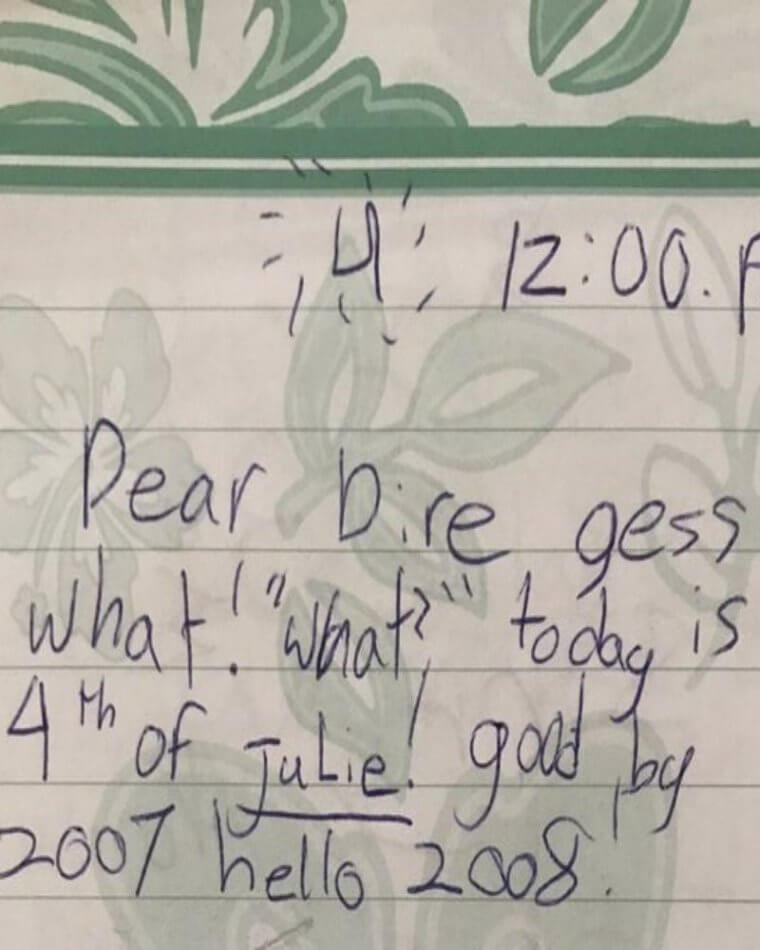 4 12:00.P
Dear Dire gess
what! "what?" today is
4th of Julie! good by
2007 hello 2008!